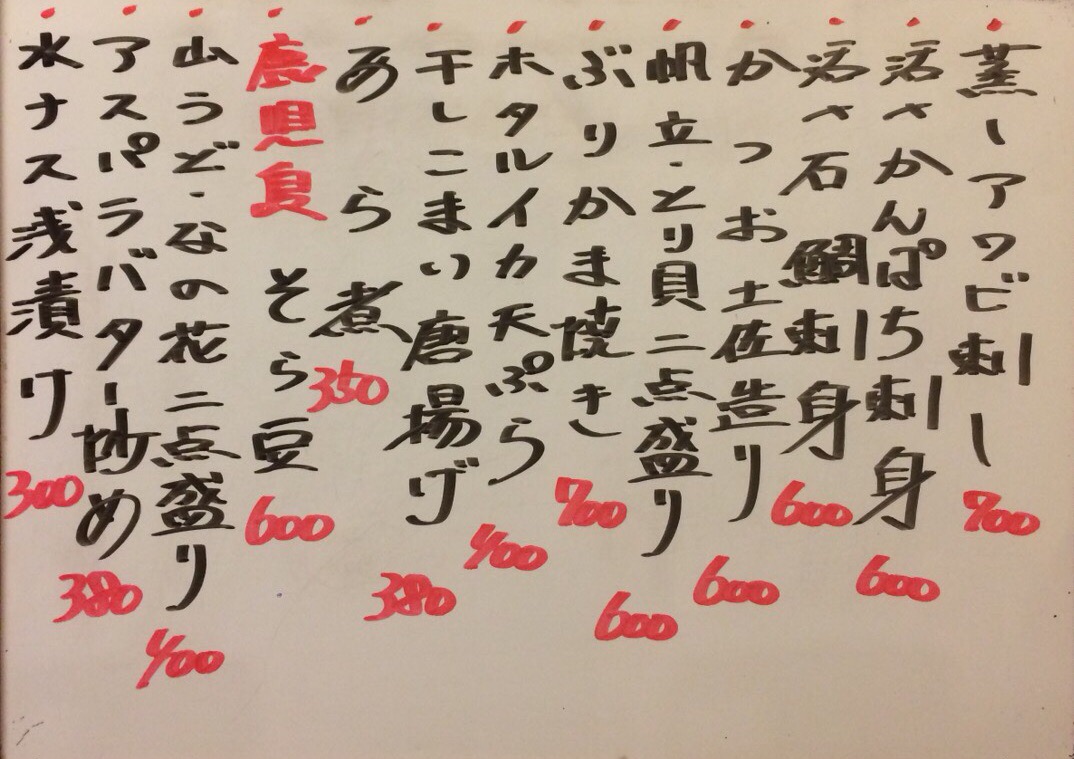 蒸しアワビ刺し 700
活〆かんぱち刺身 600
活〆石鯛刺身 600
かつお土佐造り 600
帆立・とり貝二点盛り 600
ぶりかま焼き 700
ホタルイカ天ぷら 400
干しこまい唐揚げ 380
あら煮 350
鹿児島そら豆 600
山うど・なの花二点盛り 400
アスパラバター炒め 380
水ナス浅漬け 300